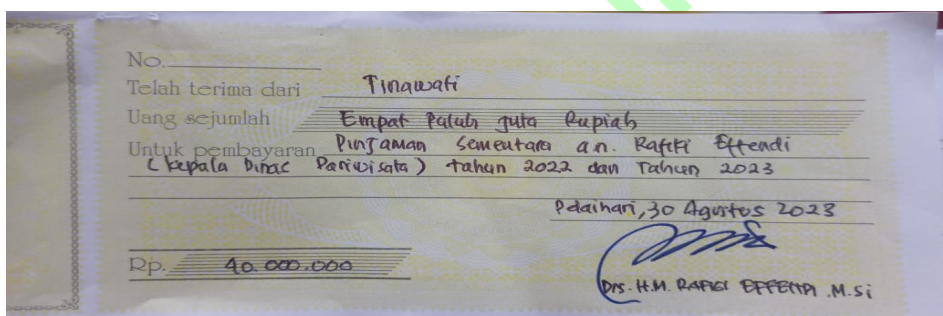 No.
Telah terima dari Tinawati
Uang sejumlah Empat Puluh Juta Rupiah
Untuk pembayaran Pinjaman Sementara a.n. Rafiki Effendi
(Kepala Dinas Pariwisata) tahun 2022 dan Tahun 2023
Pelaihari, 30 Agustus 2023
Rp. 40.000.000
Drs. H.M. RAFIKI EFFENDI .M.Si